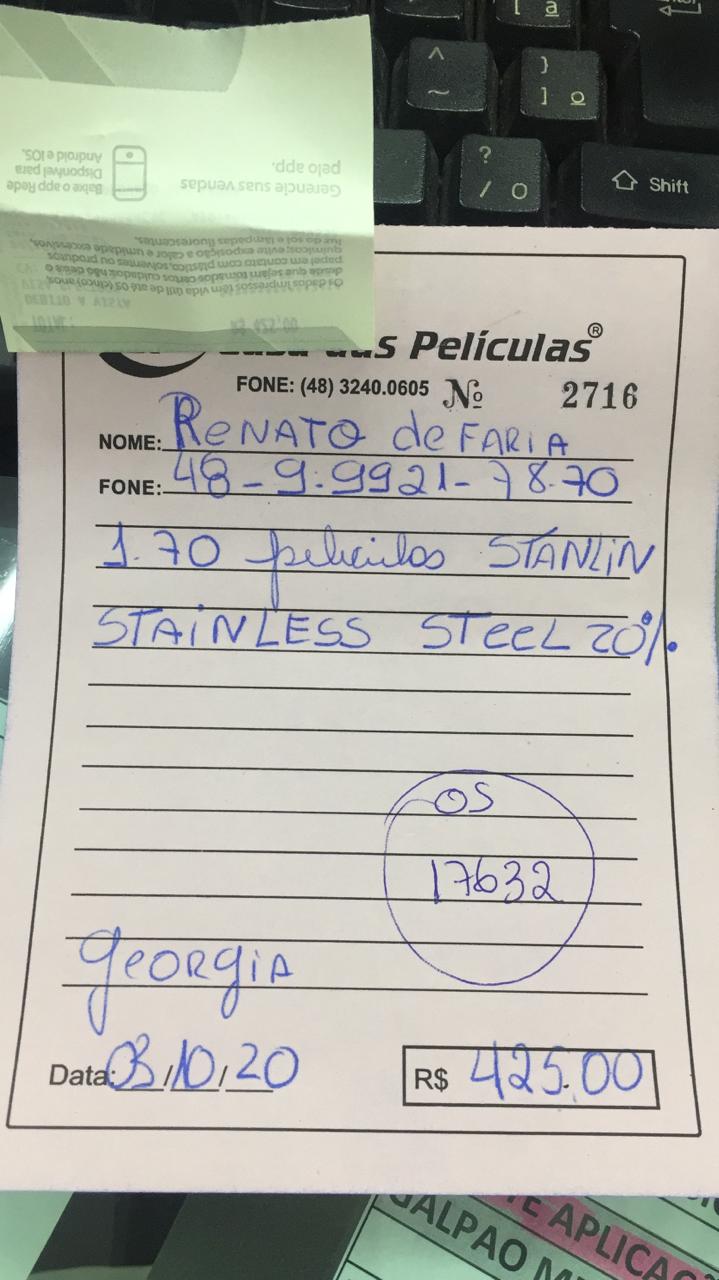 [ a
^
~
}
] º
?
/ O
Shift
Baixe o app Rede
Disponível para
Android e IOS.
Gerencie suas vendas
pelo app.
Os dados impressos têm vida útil de até 05 (cinco) anos,
desde que sejam tomados certos cuidados: não deixe o
papel em contato com plástico, solventes ou produtos
químicos; evite exposição a calor e umidade excessivos,
luz do sol e lâmpadas fluorescentes.
DEBITO A VISTA
Películas®
FONE: (48) 3240.0605 Nº 2716
NOME: RENATO de FARIA
FONE: 48-9.9921-78.70
1.70 películas STANLIN
STAINLESS STEEL 20%.
OS
17632
georgia
Data: 03/10/20
R$ 425.00
TE APLICAÇ
GALPAO M